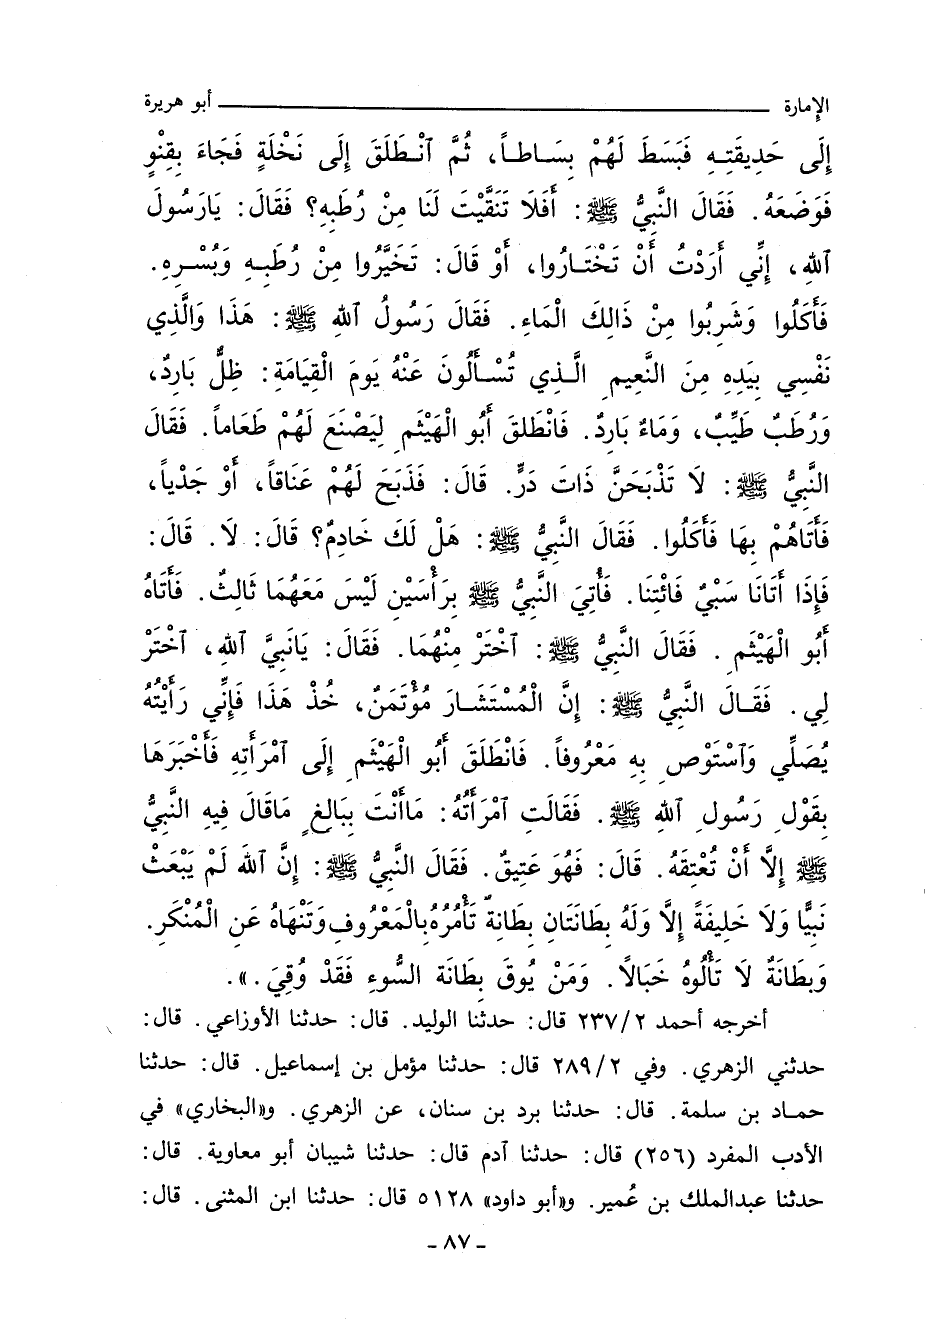 الإمارة ــــــــــــ أبو هريرة
إِلَى حَدِيقَتِهِ فَبَسَطَ لَهُمْ بِسَاطاً، ثُمَّ ٱنْطَلَقَ إِلَى نَخْلَةٍ فَجَاءَ بِقِنْوٍ
فَوَضَعَهُ. فَقَالَ النَّبِيُّ ﷺ: أَفَلَا تَنَقَّيْتَ لَنَا مِنْ رُطَبِهِ؟ فَقَالَ: يَارَسُولَ
ٱللهِ، إِنِّي أَرَدْتُ أَنْ تَخْتَارُوا، أَوْ قَالَ: تَخَيَّرُوا مِنْ رُطَبِهِ وَبُسْرِهِ.
فَأَكَلُوا وَشَرِبُوا مِنْ ذَالِكَ الْمَاءِ. فَقَالَ رَسُولُ ٱللهِ ﷺ: هَذَا وَالَّذِي
نَفْسِي بِيَدِهِ مِنَ النَّعِيمِ الَّذِي تُسْأَلُونَ عَنْهُ يَومَ الْقِيَامَةِ: ظِلٌّ بَارِدٌ،
وَرُطَبٌ طَيِّبٌ، وَمَاءٌ بَارِدٌ. فَانْطَلقَ أَبُو الْهَيْثَمِ لِيَصْنَعَ لَهُمْ طَعَاماً. فَقَالَ
النَّبِيُّ ﷺ: لَا تَذْبَحَنَّ ذَاتَ دَرٍّ. قَالَ: فَذَبَحَ لَهُمْ عَنَاقاً، أَوْ جَدْياً،
فَأَتَاهُمْ بِهَا فَأَكَلُوا. فَقَالَ النَّبِيُّ ﷺ: هَلْ لَكَ خَادِمٌ؟ قَالَ: لَا. قَالَ:
فَإِذَا أَتَانَا سَبْيٌ فَائْتِنَا. فَأُتِيَ النَّبِيُّ ﷺ بِرَأْسَيْنِ لَيْسَ مَعَهُمَا ثَالِثٌ. فَأَتَاهُ
أَبُو الْهَيْثَمِ. فَقَالَ النَّبِيُّ ﷺ: ٱخْتَرْ مِنْهُمَا. فَقَالَ: يَانَبِيَّ ٱللهِ، ٱخْتَرْ
لِي. فَقَالَ النَّبِيُّ ﷺ: إِنَّ الْمُسْتَشَارَ مُؤْتَمَنٌ، خُذْ هَذَا فَإِنِّي رَأَيْتُهُ
يُصَلِّي وَٱسْتَوْصِ بِهِ مَعْرُوفاً. فَانْطَلَقَ أَبُو الْهَيْثَمِ إِلَى ٱمْرَأَتِهِ فَأَخْبَرَهَا
بِقَوْلِ رَسُولِ ٱللهِ ﷺ. فَقَالَتِ ٱمْرَأَتُهُ: مَاأَنْتَ بِبَالِغٍ مَاقَالَ فِيهِ النَّبِيُّ
ﷺ إِلَّا أَنْ تُعْتِقَهُ. قَالَ: فَهُوَ عَتِيقٌ. فَقَالَ النَّبِيُّ ﷺ: إِنَّ ٱللهَ لَمْ يَبْعَثْ
نَبِيًّا وَلَا خَلِيفَةً إِلَّا وَلَهُ بِطَانَتَانِ بِطَانةٌ تَأْمُرُهُ بِالْمَعْرُوفِ وَتَنْهَاهُ عَنِ الْمُنْكَرِ.
وَبِطَانَةٌ لَا تَأْلُوهُ خَبَالًا. وَمَنْ يُوقَ بِطَانَةَ السُّوءِ فَقَدْ وُقِيَ.».
أخرجه أحمد ٢٣٧/٢ قال: حدثنا الوليد. قال: حدثنا الأوزاعي. قال:
حدثني الزهري. وفي ٢٨٩/٢ قال: حدثنا مؤمل بن إسماعيل. قال: حدثنا
حماد بن سلمة. قال: حدثنا برد بن سنان، عن الزهري. و«البخاري» في
الأدب المفرد (٢٥٦) قال: حدثنا آدم قال: حدثنا شيبان أبو معاوية. قال:
حدثنا عبدالملك بن عُمير. و«أبو داود» ٥١٢٨ قال: حدثنا ابن المثنى. قال:
- ٨٧ -